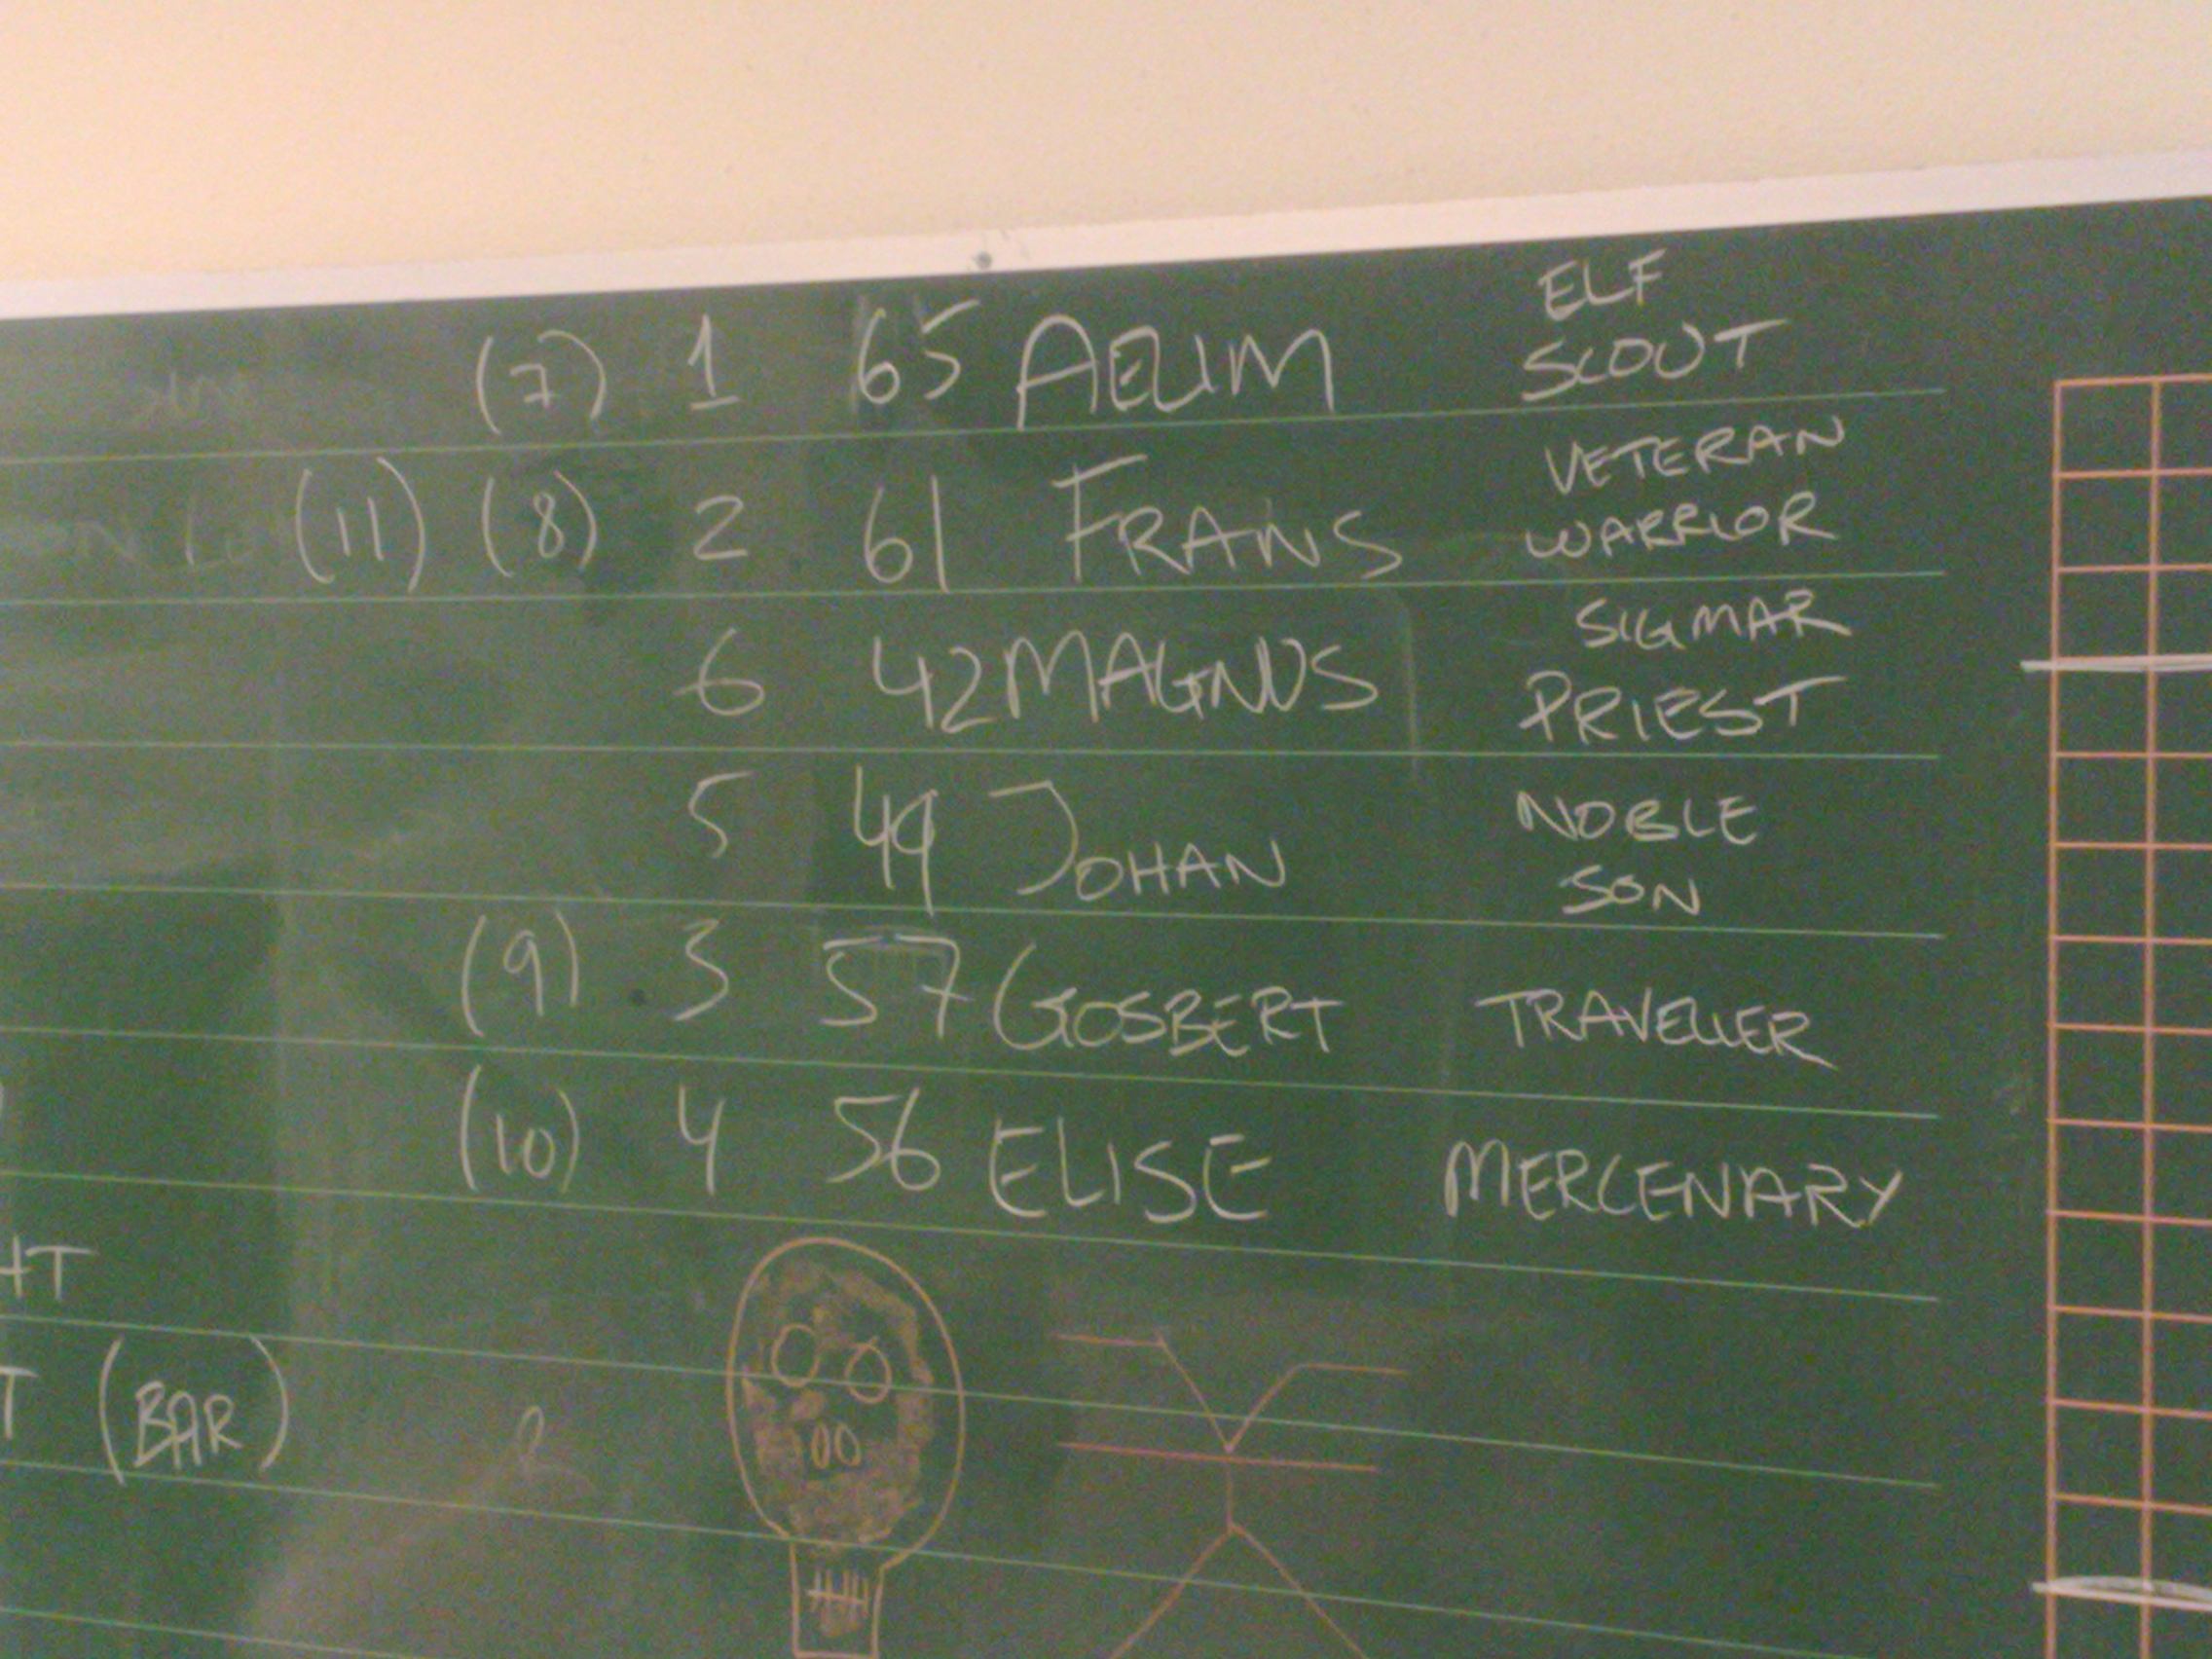 (7) 1 65 AELIM ELF
SCOUT
(11) (8) 2 61 FRANS VETERAN
WARRIOR
6 42 MAGNUS SIGMAR
PRIEST
5 49 JOHAN NOBLE
SON
(9) 3 57 GOSBERT TRAVELLER
(10) 4 56 ELISE MERCENARY
HT
T (BAR)